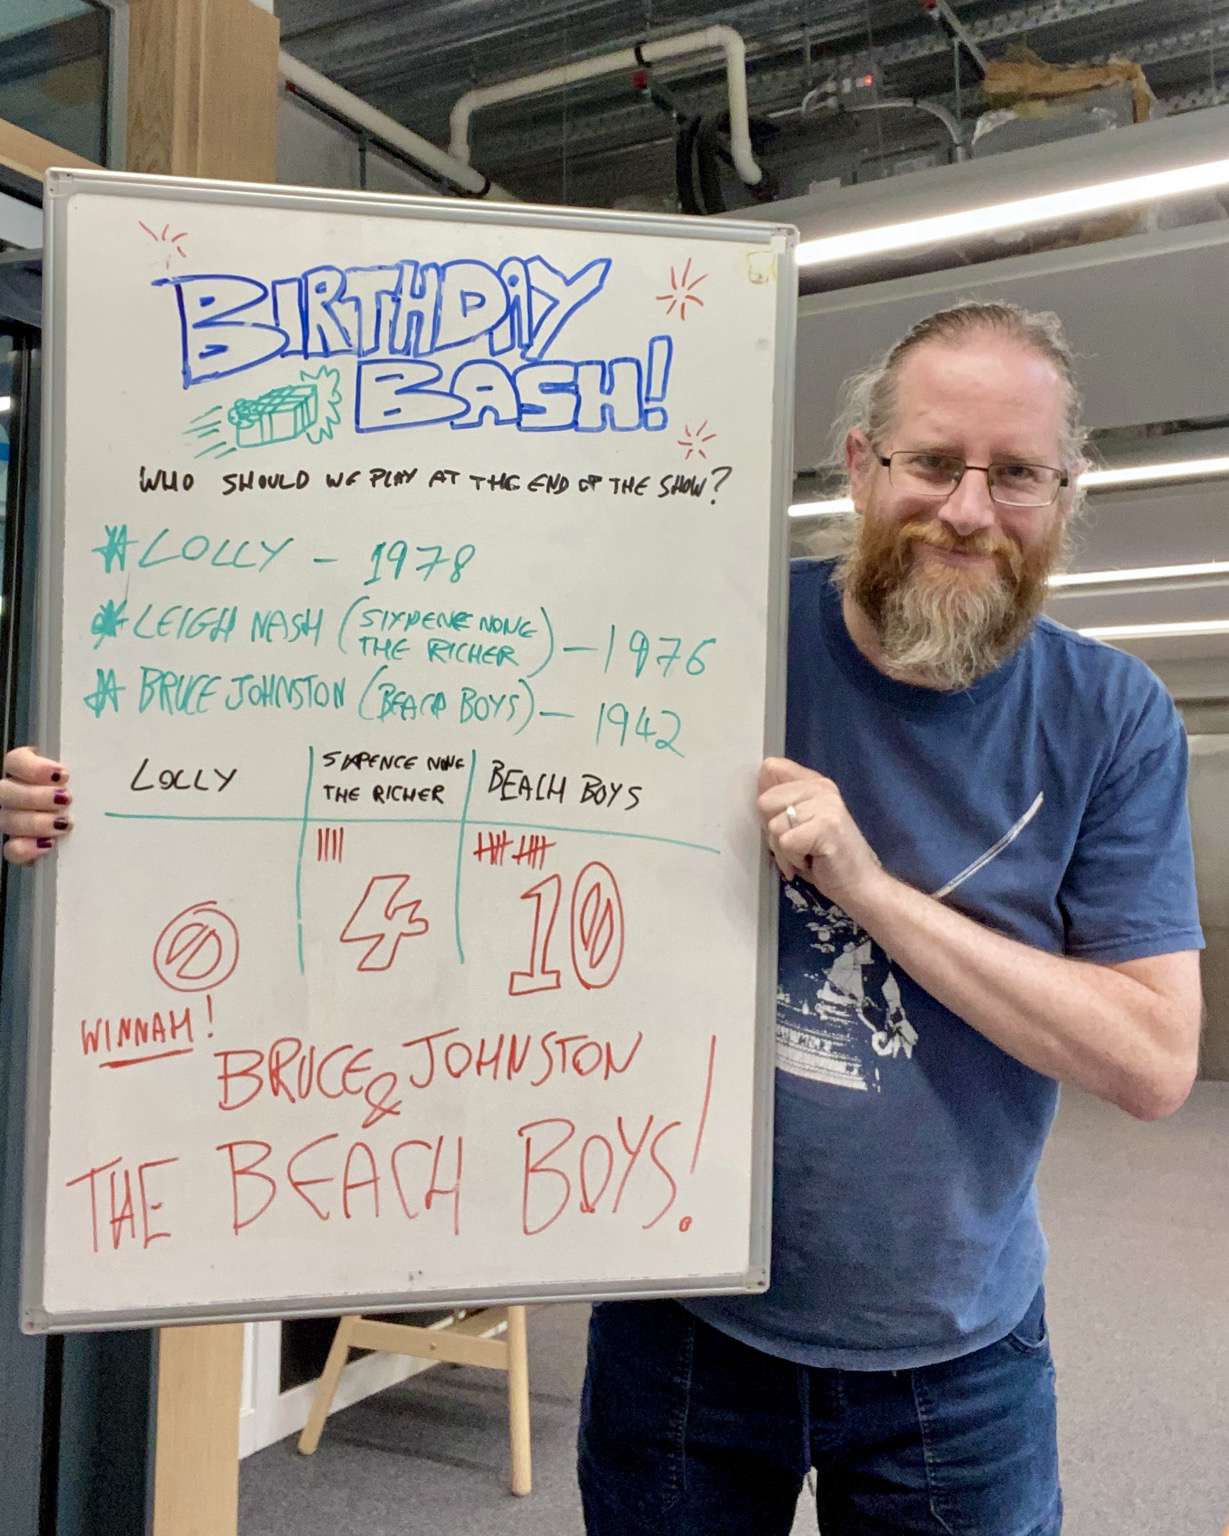 BIRTHDAY
BASH!
WHO SHOULD WE PLAY AT THE END OF THE SHOW?
LOLLY - 1978
LEIGH NASH (SIXPENE NONE THE RICHER) - 1976
BRUCE JOHNSTON (BEACH BOYS) - 1942
LOLLY
SIXPENCE NONE
THE RICHER
BEACH BOYS
0
4
10
WINNAH!
BRUCE JOHNSTON
&
THE BEACH BOYS!